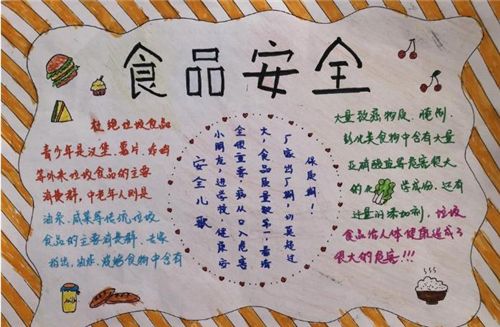 食品安全
拒绝垃圾食品
青少年是汉堡、薯片、奶油
等外来垃圾食品的主要
消费群,中老年人则是
油条、咸菜等传统垃圾
食品的主要消费群。专家
指出,油炸、腌制食物中含有
安全儿歌
小朋友,进学校,健康安
全很重要。病从口入危害
大,食品质量要牢,看清
厂家出厂期,切莫超过
保质期!
大量致癌物质。腌制、
膨化类食物中含有大量
亚硝酸盐等危害很大
的化学成份,还有
过量的添加剂,垃圾
食品给人体健康造成了
很大的危害!!!